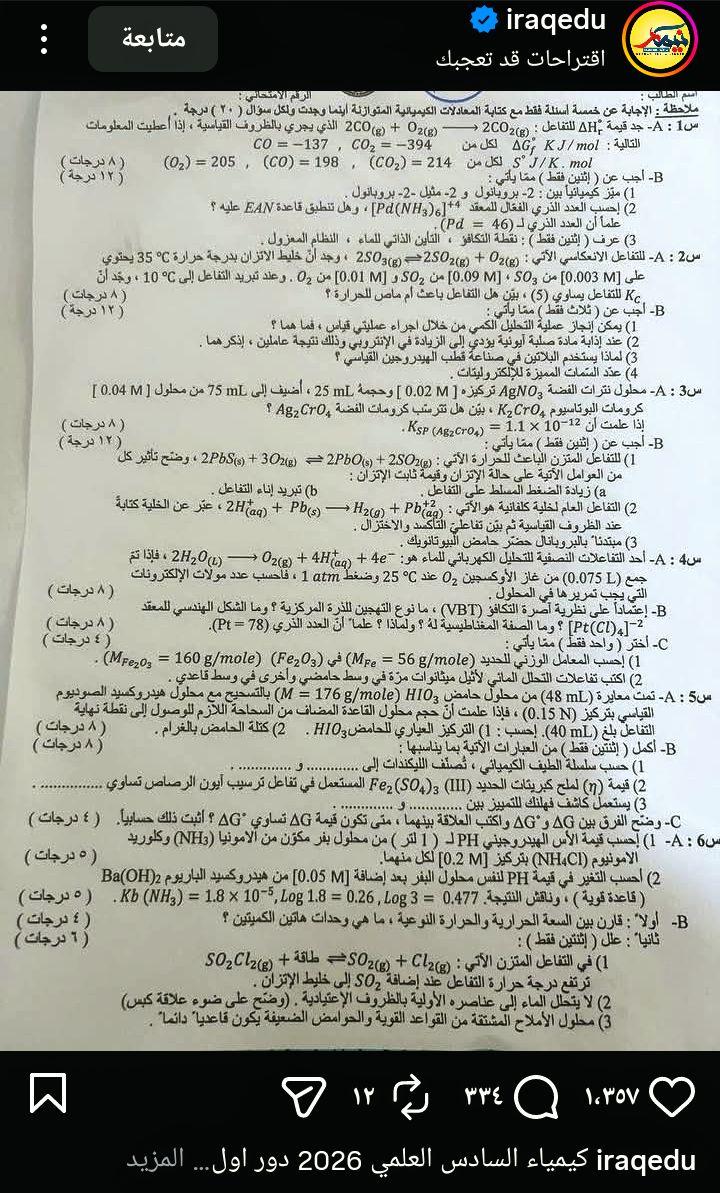 iraqedu
متابعة
اقتراحات قد تعجبك
اسم الطالب : الرقم الامتحاني :
ملاحظة : الإجابة عن خمسة أسئلة فقط مع كتابة المعادلات الكيميائية المتوازنة أينما وجدت ولكل سؤال ( ٢٠ ) درجة .
س1 : A- جد قيمة ΔH°r للتفاعل : 2CO(g) + O2(g) ⟶ 2CO2(g) الذي يجري بالظروف القياسية ، إذا أعطيت المعلومات
التالية : ΔG°f KJ/mol لكل من CO = −137 , CO2 = −394
S° J/K. mol لكل من (O2) = 205 , (CO) = 198 , (CO2) = 214 ( ٨ درجات )
B- أجب عن ( إثنين فقط ) ممّا يأتي : ( ١٢ درجة )
1) ميّز كيميائياً بين : 2- بروبانول و 2- مثيل -2- بروبانول .
2) إحسب العدد الذري الفعّال للمعقد [Pd(NH3)6]+4 ، وهل تنطبق قاعدة EAN عليه ؟
علماً أن العدد الذري لـ (Pd = 46).
3) عرف ( إثنين فقط ) : نقطة التكافؤ ، التأين الذاتي للماء ، النظام المعزول .
س2 : A- للتفاعل الانعكاسي الآتي : 2SO3(g) ⇌ 2SO2(g) + O2(g) ، وجد أنّ خليط الاتزان بدرجة حرارة 35 °C يحتوي
على [0.003 M] من SO3 ، [0.09 M] من SO2 و [0.01 M] من O2 . وعند تبريد التفاعل إلى 10 °C ، وجّد أنّ
KC للتفاعل يساوي (5) ، بيّن هل التفاعل باعث أم ماص للحرارة ؟ ( ٨ درجات )
B- أجب عن ( ثلاث فقط ) ممّا يأتي : ( ١٢ درجة )
1) يمكن إنجاز عملية التحليل الكمي من خلال اجراء عمليتي قياس ، فما هما ؟
2) عند إذابة مادة صلبة أيونية يؤدي إلى الزيادة في الإنتروبي وذلك نتيجة عاملين ، إذكرهما .
3) لماذا يستخدم البلاتين في صناعة قطب الهيدروجين القياسي ؟
4) عدّد السّمات المميزة للإلكتروليتات .
س3 : A- محلول نترات الفضة AgNO3 تركيزه [ 0.02 M ] وحجمهُ 25 mL ، أضيف إلى 75 mL من محلول [ 0.04 M ]
كرومات البوتاسيوم K2CrO4 ، بيّن هل تترسّب كرومات الفضة Ag2CrO4 ؟
إذا علمت أن KSP (Ag2CrO4) = 1.1 × 10−12 . ( ٨ درجات )
B- أجب عن ( إثنين فقط ) ممّا يأتي : ( ١٢ درجة )
1) للتفاعل المتزن الباعث للحرارة الآتي : 2PbS(s) + 3O2(g) ⇌ 2PbO(s) + 2SO2(g) ، وضّح تأثير كل
من العوامل الآتية على حالة الإتزان وقيمة ثابت الإتزان :
a) زيادة الضغط المسلط على التفاعل . b) تبريد إناء التفاعل .
2) التفاعل العام لخلية كلفانية هوالآتي : 2H+(aq) + Pb(s) ⟶ H2(g) + Pb+2(aq) ، عبّر عن الخلية كتابةً
عند الظروف القياسية ثم بيّن تفاعليّ التأكسد والاختزال .
3) مبتدئاً بالبروبانال حضّر حامض البيوتانويك .
س4 : A- أحد التفاعلات النصفية للتحليل الكهربائي للماء هو: 2H2O(L) ⟶ O2(g) + 4H+(aq) + 4e− ، فإذا تمّ
جمع (0.075 L) من غاز الأوكسجين O2 عند 25 °C وضغط 1 atm ، فاحسب عدد مولات الإلكترونات
التي يجب تمريرها في المحلول . ( ٨ درجات )
B- إعتماداً على نظرية آصرة التكافؤ (VBT) ، ما نوع التهجين للذرة المركزية ؟ وما الشكل الهندسي للمعقد
[Pt(Cl)4]−2 ؟ وما الصفة المغناطيسية لهُ ؟ ولماذا ؟ علماً أنّ العدد الذري (Pt = 78). ( ٨ درجات )
C- أختر ( واحد فقط ) ممّا يأتي : ( ٤ درجات )
1) إحسب المعامل الوزني للحديد (MFe = 56 g/mole) في (Fe2O3) (MFe2O3 = 160 g/mole) .
2) اكتب تفاعلات التحلل المائي لأثيل ميثانوات مرّة في وسط حامضي وأخرى في وسط قاعدي .
س5 : A- تمت معايرة (48 mL) من محلول حامض HIO3 (M = 176 g/mole) بالتسحيح مع محلول هيدروكسيد الصوديوم
القياسي بتركيز (0.15 N) ، فإذا علمت أنّ حجم محلول القاعدة المضاف من السحاحة اللازم للوصول إلى نقطة نهاية
التفاعل بلغ (40 mL). إحسب : 1) التركيز العياري للحامض HIO3 . 2) كتلة الحامض بالغرام . ( ٨ درجات )
B- أكمل ( إثنتين فقط ) من العبارات الآتية بما يناسبها : ( ٨ درجات )
1) حسب سلسلة الطيف الكيميائي ، تُصنّف الليكندات إلى .............. و .............. .
2) قيمة (η) لملح كبريتات الحديد (III) Fe2(SO4)3 المستعمل في تفاعل ترسيب أيون الرصاص تساوي .............. .
3) يستعمل كاشف فهلنك للتمييز بين .............. و .............. .
C- وضّح الفرق بين ΔG و ΔG° واكتب العلاقة بينهما ، متى تكون قيمة ΔG تساوي ΔG° ؟ أثبت ذلك حسابياً. ( ٤ درجات )
س6 : A- 1) إحسب قيمة الأس الهيدروجيني PH لـ ( 1 لتر ) من محلول بفر مكوّن من الامونيا (NH3) وكلوريد
الامونيوم (NH4Cl) بتركيز [0.2 M] لكل منهما. ( ٥ درجات )
2) أحسب التغير في قيمة PH لنفس محلول البفر بعد إضافة [0.05 M] من هيدروكسيد الباريوم Ba(OH)2
( قاعدة قوية ) ، وناقش النتيجة. Kb (NH3) = 1.8 × 10−5, Log 1.8 = 0.26 , Log 3 = 0.477 . ( ٥ درجات )
B- أولاً : قارن بين السعة الحرارية والحرارة النوعية ، ما هي وحدات هاتين الكميتين ؟ ( ٤ درجات )
ثانياً : علل ( إثنتين فقط ) : ( ٦ درجات )
1) في التفاعل المتزن الآتي : SO2Cl2(g) + طاقة ⇌ SO2(g) + Cl2(g)
ترتفع درجة حرارة التفاعل عند إضافة SO2 إلى خليط الإتزان .
2) لا يتحلل الماء إلى عناصره الأولية بالظروف الإعتيادية . (وضّح على ضوء علاقة كبس)
3) محلول الأملاح المشتقة من القواعد القوية والحوامض الضعيفة يكون قاعدياً دائماً .
١،٣٥٧ ٣٣٤ ١٢
iraqedu كيمياء السادس العلمي 2026 دور اول... المزيد